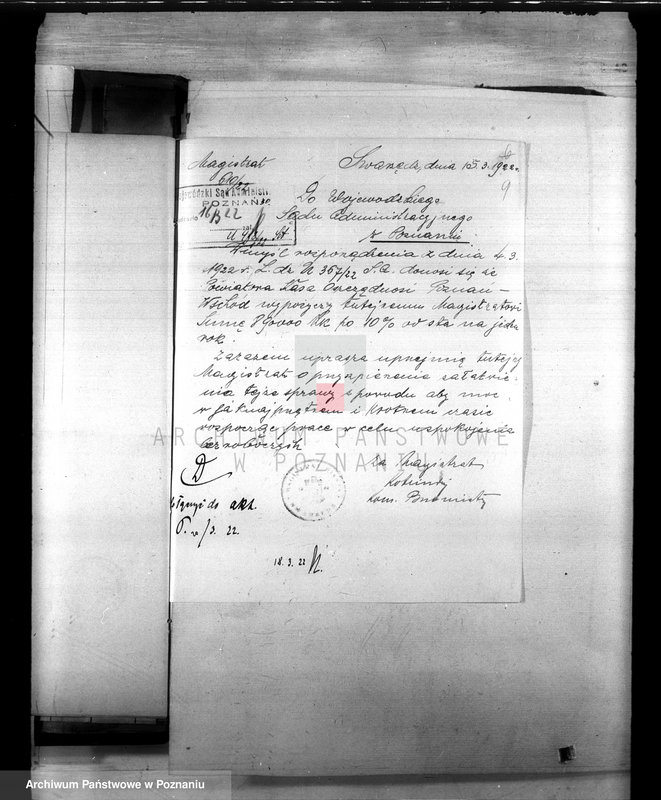 Magistrat
Swarzędz, dnia 15. 3. 1922 r.
9
POZNAŃ
16/3 22
Do Wojewódzkiego
Sądu Administracyjnego
w Poznaniu
W myśl rozporządzenia z dnia 4. 3.
1922 r. L. dz. N 367/22 S.A. donosi się że
Powiatowa Kasa Oszczędności Poznań –
Wschód wypożyczy tutejszemu Magistratowi
Sumę 890000 Mk po 10% od sta na jeden
rok.
Zarazem uprasza uprzejmię tutejszy
Magistrat o przyspieszenie załatwie-
nia tejże sprawy z powodu aby moc
w jaknajprętszem i krótkiem czasie
rozpocząć pracę w celu uspokojenia
bezrobotnych
ARCHIWUM PAŃSTWOWE
W POZNANIU
Za Magistrat
Kom. Burmistrz
D
do akt.
/3. 22.
18. 3. 22
Archiwum Państwowe w Poznaniu